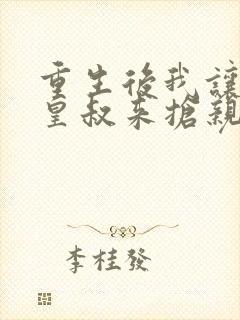 重生後我讓
皇叔来搶親
李桂發